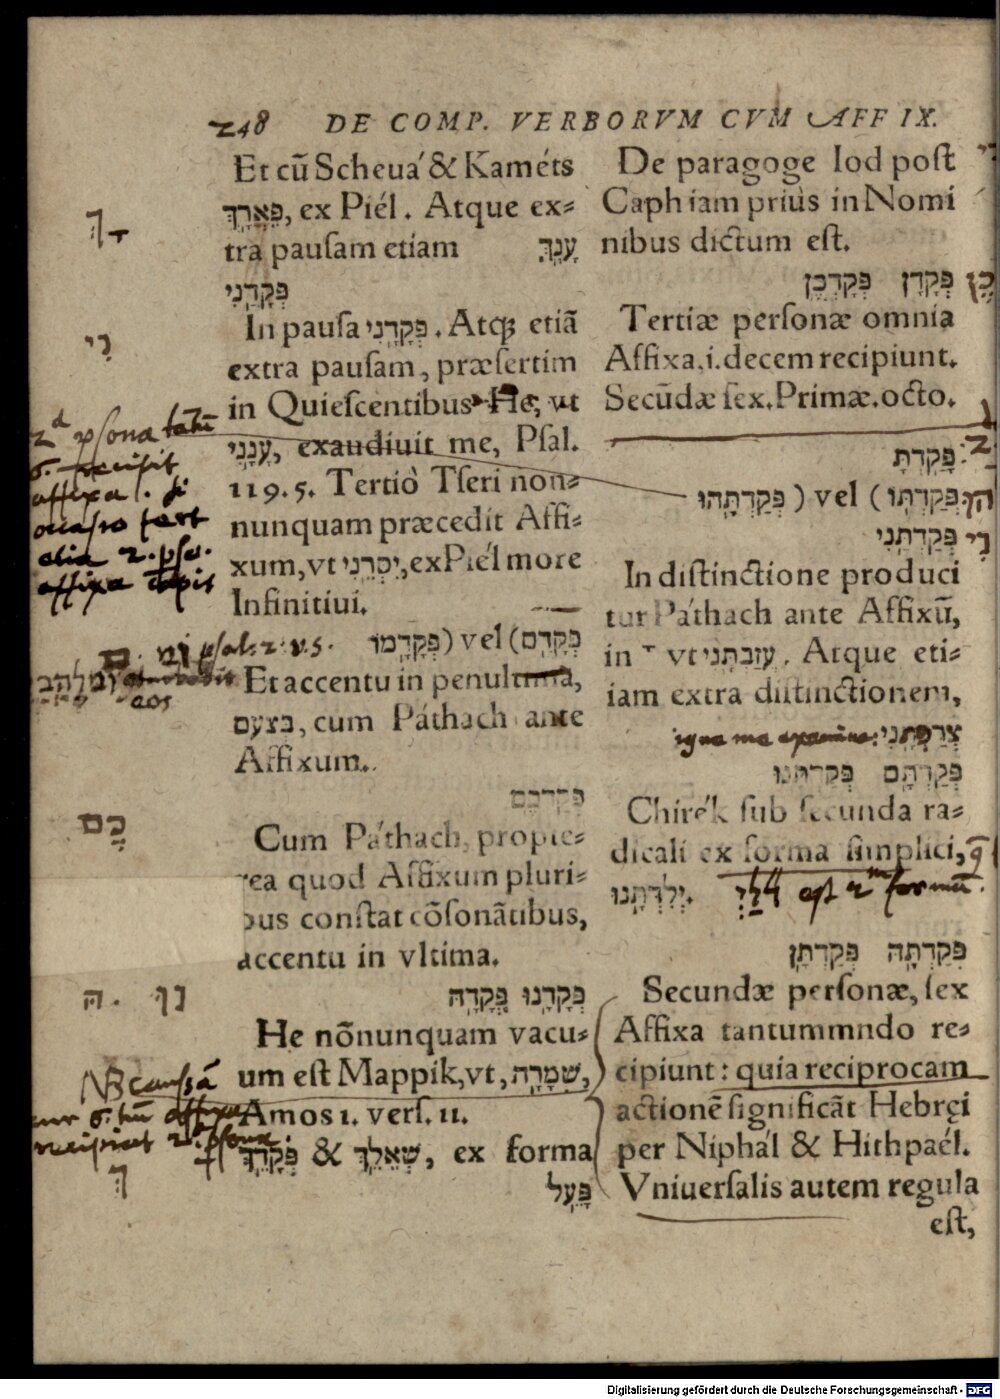 248 DE COMP. VERBORVM CVM AFF IX.
Et cũ Scheuá & Kaméts
פֵּאֲרָךְ, ex Piél. Atque ex-
tra pausam etiam עָנָךְ
פְּקָדַנִי
In pausa פְּקָדָנִי. Atq; etiã
extra pausam, præsertim
in Quiescentibus He, vt
עָנָנִי, exaudiuit me, Psal.
119.5. Tertiò Tseri non-
nunquam præcedit Affi-
xum, vt יִסְּרֵנִי, ex Piél more
Infinitiui.
פְּקָדָם) vel (פְּקָדָמוֹ
Et accentu in penultima,
בצעם, cum Páthach ante
Affixum.
פְּקָדְכֶם
Cum Páthach, propte-
rea quod Affixum pluri-
bus constat cõsonãtibus,
accentu in vltima.
פְּקָדָנוּ פְּקָדָהּ
He nõnunquam vacu-
um est Mappik, vt, שְׁמָרָה,
Amos 1. vers. 11.
פְּקָדֵךְ & שְׁאֵלֵךְ, ex forma
פָּעֵל
De paragoge Iod post
Caph iam priùs in Nomi
nibus dictum est.
פְּקָדָן פְּקָדְכֶן
Tertiæ personæ omnia
Affixa, i. decem recipiunt.
Secũdæ sex. Primæ. octo.
פָּקַדְתָּ
פְּקַדְתּוֹ) vel (פְּקַדְתָּהוּ
פְּקַדְתַּנִי
In distinctione produci
tur Páthach ante Affixũ,
in ָ vt עֲזַבְתָּנִי. Atque eti-
iam extra distinctionem,
צְרַפְתָּנִי
igne me examina:
פְּקַדְתָּם פְּקַדְתָּנוּ
Chirék sub secunda ra-
dicali ex forma simplici,
יְלִדְתָּנוּ.
est 2 formũ.
פְּקַדְתָּהּ פְּקַדְתָּן
Secundæ personæ, sex
Affixa tantummndo re-
cipiunt: quia reciprocam
actionẽ significãt Hebręi
per Niphál & Hithpaél.
Vniuersalis autem regula
est,
ךָ
נִי
2ᵈ psona tatũ
6. recipit
affixa. si
occasio fert
etiã 2. psõ.
affixa capit
ם. מוֹ psal: 2: v. 5.
eos
כֶם
נוּ. הּ
NB caussã
cur 6. tm̃ affixa
recipiat 2. psona.
ךְ
Digitalisierung gefördert durch die Deutsche Forschungsgemeinschaft - DFG